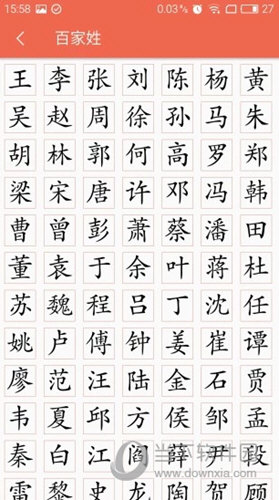 15:58 0.03% 27
百家姓
王 李 张 刘 陈 杨 黄
吴 赵 周 徐 孙 马 朱
胡 林 郭 何 高 罗 郑
梁 宋 唐 许 邓 冯 韩
曹 曾 彭 萧 蔡 潘 田
董 袁 于 余 叶 蒋 杜
苏 魏 程 吕 丁 沈 任
姚 卢 傅 钟 姜 崔 谭
廖 范 汪 陆 金 石 贾
韦 夏 邱 方 侯 邹 孟
秦 白 江 阎 薛 尹 段
雷 黎 史 龙 陶 贺 顾
当下软件园
www.downxia.com